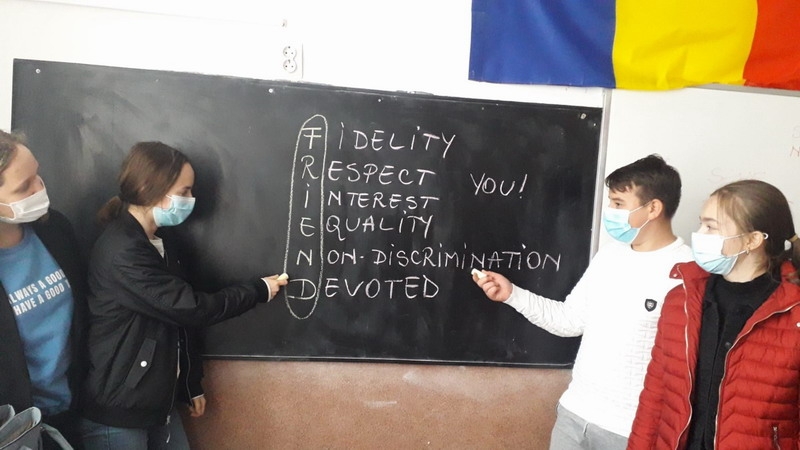 FIDELITY
RESPECT
INTEREST
YOU!
EQUALITY
NON-DISCRIMINATION
DEVOTED
ALWAYS A GOOD
HAVE A GOOD